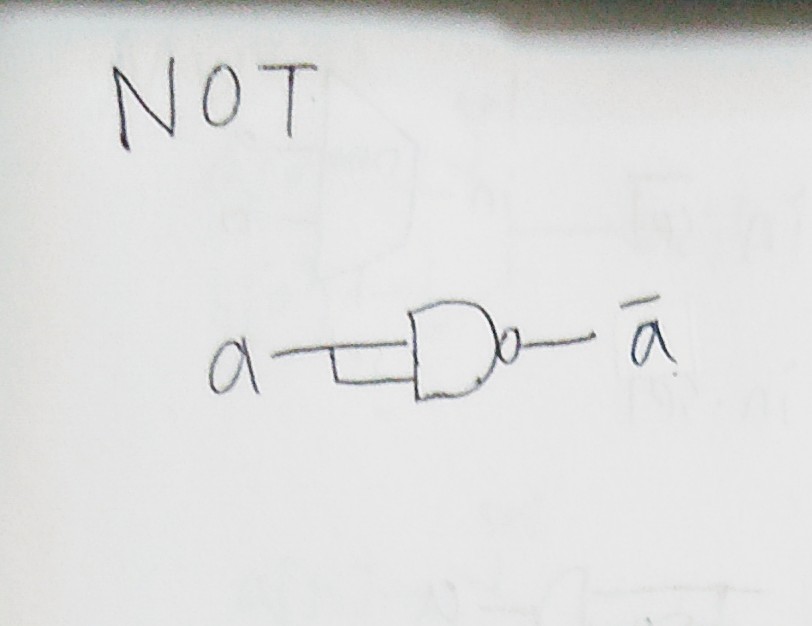 NOT
a ā